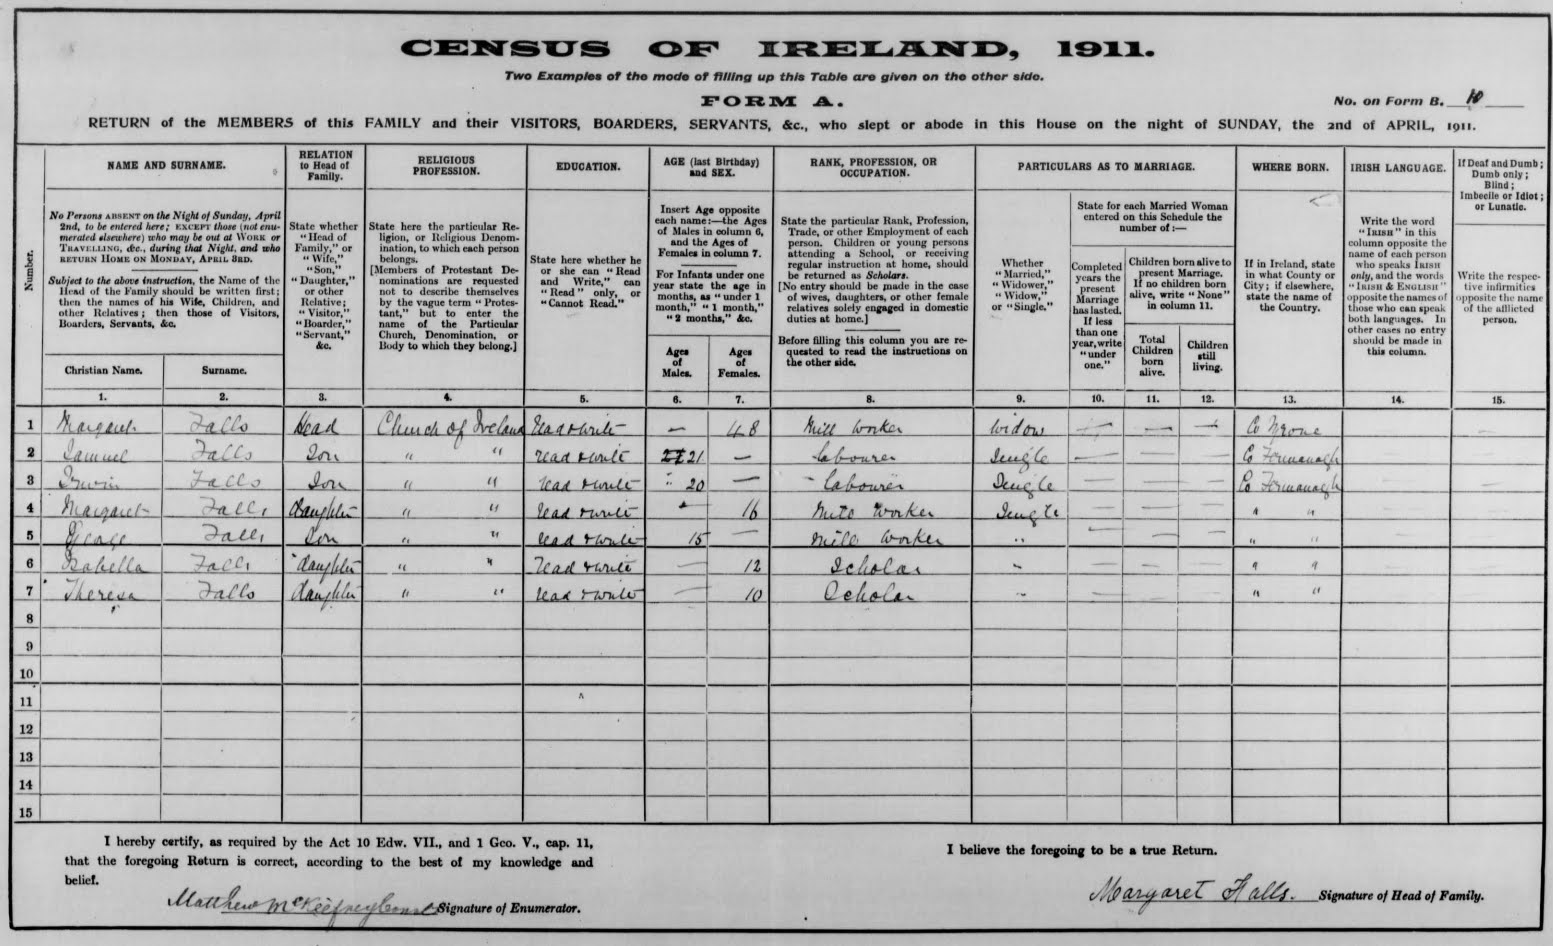 CENSUS OF IRELAND, 1911.
Two Examples of the mode of filling up this Table are given on the other side.
FORM A.
No. on Form B. 10
RETURN of the MEMBERS of this FAMILY and their VISITORS, BOARDERS, SERVANTS, &c., who slept or abode in this House on the night of SUNDAY, the 2nd of APRIL, 1911.
Number.
NAME AND SURNAME.
No Persons ABSENT on the Night of Sunday, April
2nd, to be entered here; EXCEPT those (not enu-
merated elsewhere) who may be out at WORK or
TRAVELLING, &c., during that Night, and who
RETURN HOME ON MONDAY, APRIL 3RD.
Subject to the above instruction, the Name of the
Head of the Family should be written first;
then the names of his Wife, Children, and
other Relatives; then those of Visitors,
Boarders, Servants, &c.
Christian Name.
Surname.
RELATION
to Head of
Family.
State whether
"Head of
Family," or
"Wife,"
"Son,"
"Daughter,"
or other
Relative;
"Visitor,"
"Boarder,"
"Servant,"
&c.
RELIGIOUS
PROFESSION.
State here the particular Re-
ligion, or Religious Denom-
ination, to which each person
belongs.
[Members of Protestant De-
nominations are requested
not to describe themselves
by the vague term "Protes-
tant," but to enter the
name of the Particular
Church, Denomination, or
Body to which they belong.]
EDUCATION.
State here whether he
or she can "Read
and Write," can
"Read" only, or
"Cannot Read."
AGE (last Birthday)
and SEX.
Insert Age opposite
each name:—the Ages
of Males in column 6,
and the Ages of
Females in column 7.
For Infants under one
year state the age in
months, as "under 1
month," "1 month,"
"2 months," &c.
Ages
of
Males.
Ages
of
Females.
RANK, PROFESSION, OR
OCCUPATION.
State the particular Rank, Profession,
Trade, or other Employment of each
person. Children or young persons
attending a School, or receiving
regular instruction at home, should
be returned as Scholars.
[No entry should be made in the case
of wives, daughters, or other female
relatives solely engaged in domestic
duties at home.]
Before filling this column you are re-
quested to read the instructions on
the other side.
PARTICULARS AS TO MARRIAGE.
Whether
"Married,"
"Widower,"
"Widow,"
or "Single."
State for each Married Woman
entered on this Schedule the
number of:—
Completed
years the
present
Marriage
has lasted.
If less
than one
year, write
"under
one."
Children born alive to
present Marriage.
If no children born
alive, write "None"
in column 11.
Total
Children
born
alive.
Children
still
living.
WHERE BORN.
If in Ireland, state
in what County or
City; if elsewhere,
state the name of
the Country.
IRISH LANGUAGE.
Write the word
"IRISH" in this
column opposite the
name of each person
who speaks IRISH
only, and the words
"IRISH & ENGLISH"
opposite the names of
those who can speak
both languages. In
other cases no entry
should be made in
this column.
If Deaf and Dumb;
Dumb only;
Blind;
Imbecile or Idiot;
or Lunatic.
Write the respec-
tive infirmities
opposite the name
of the afflicted
person.
1. 2. 3. 4. 5. 6. 7. 8. 9. 10. 11. 12. 13. 14. 15.
1 Margaret Falls Head Church of Ireland read & write — 48 Mill Worker Widow — — — Co Tyrone
2 Samuel Falls Son " " read & write 21 — Labourer Single — — — Co Fermanagh
3 Irwin Falls Son " " read & write 20 — Labourer Single — — — Co Fermanagh
4 Margaret Falls daughter " " read & write 16 Mill Worker Single — — — " "
5 George Falls Son " " read & write 15 — Mill Worker " — — — " "
6 Isabella Falls daughter " " read & write — 12 Scholar " — — — " "
7 Theresa Falls daughter " " read & write — 10 Scholar " — — — " "
8
9
10
11
12
13
14
15
I hereby certify, as required by the Act 10 Edw. VII., and 1 Geo. V., cap. 11,
that the foregoing Return is correct, according to the best of my knowledge and
belief.
Matthew McKeefrey Const Signature of Enumerator.
I believe the foregoing to be a true Return.
Margaret Falls. Signature of Head of Family.